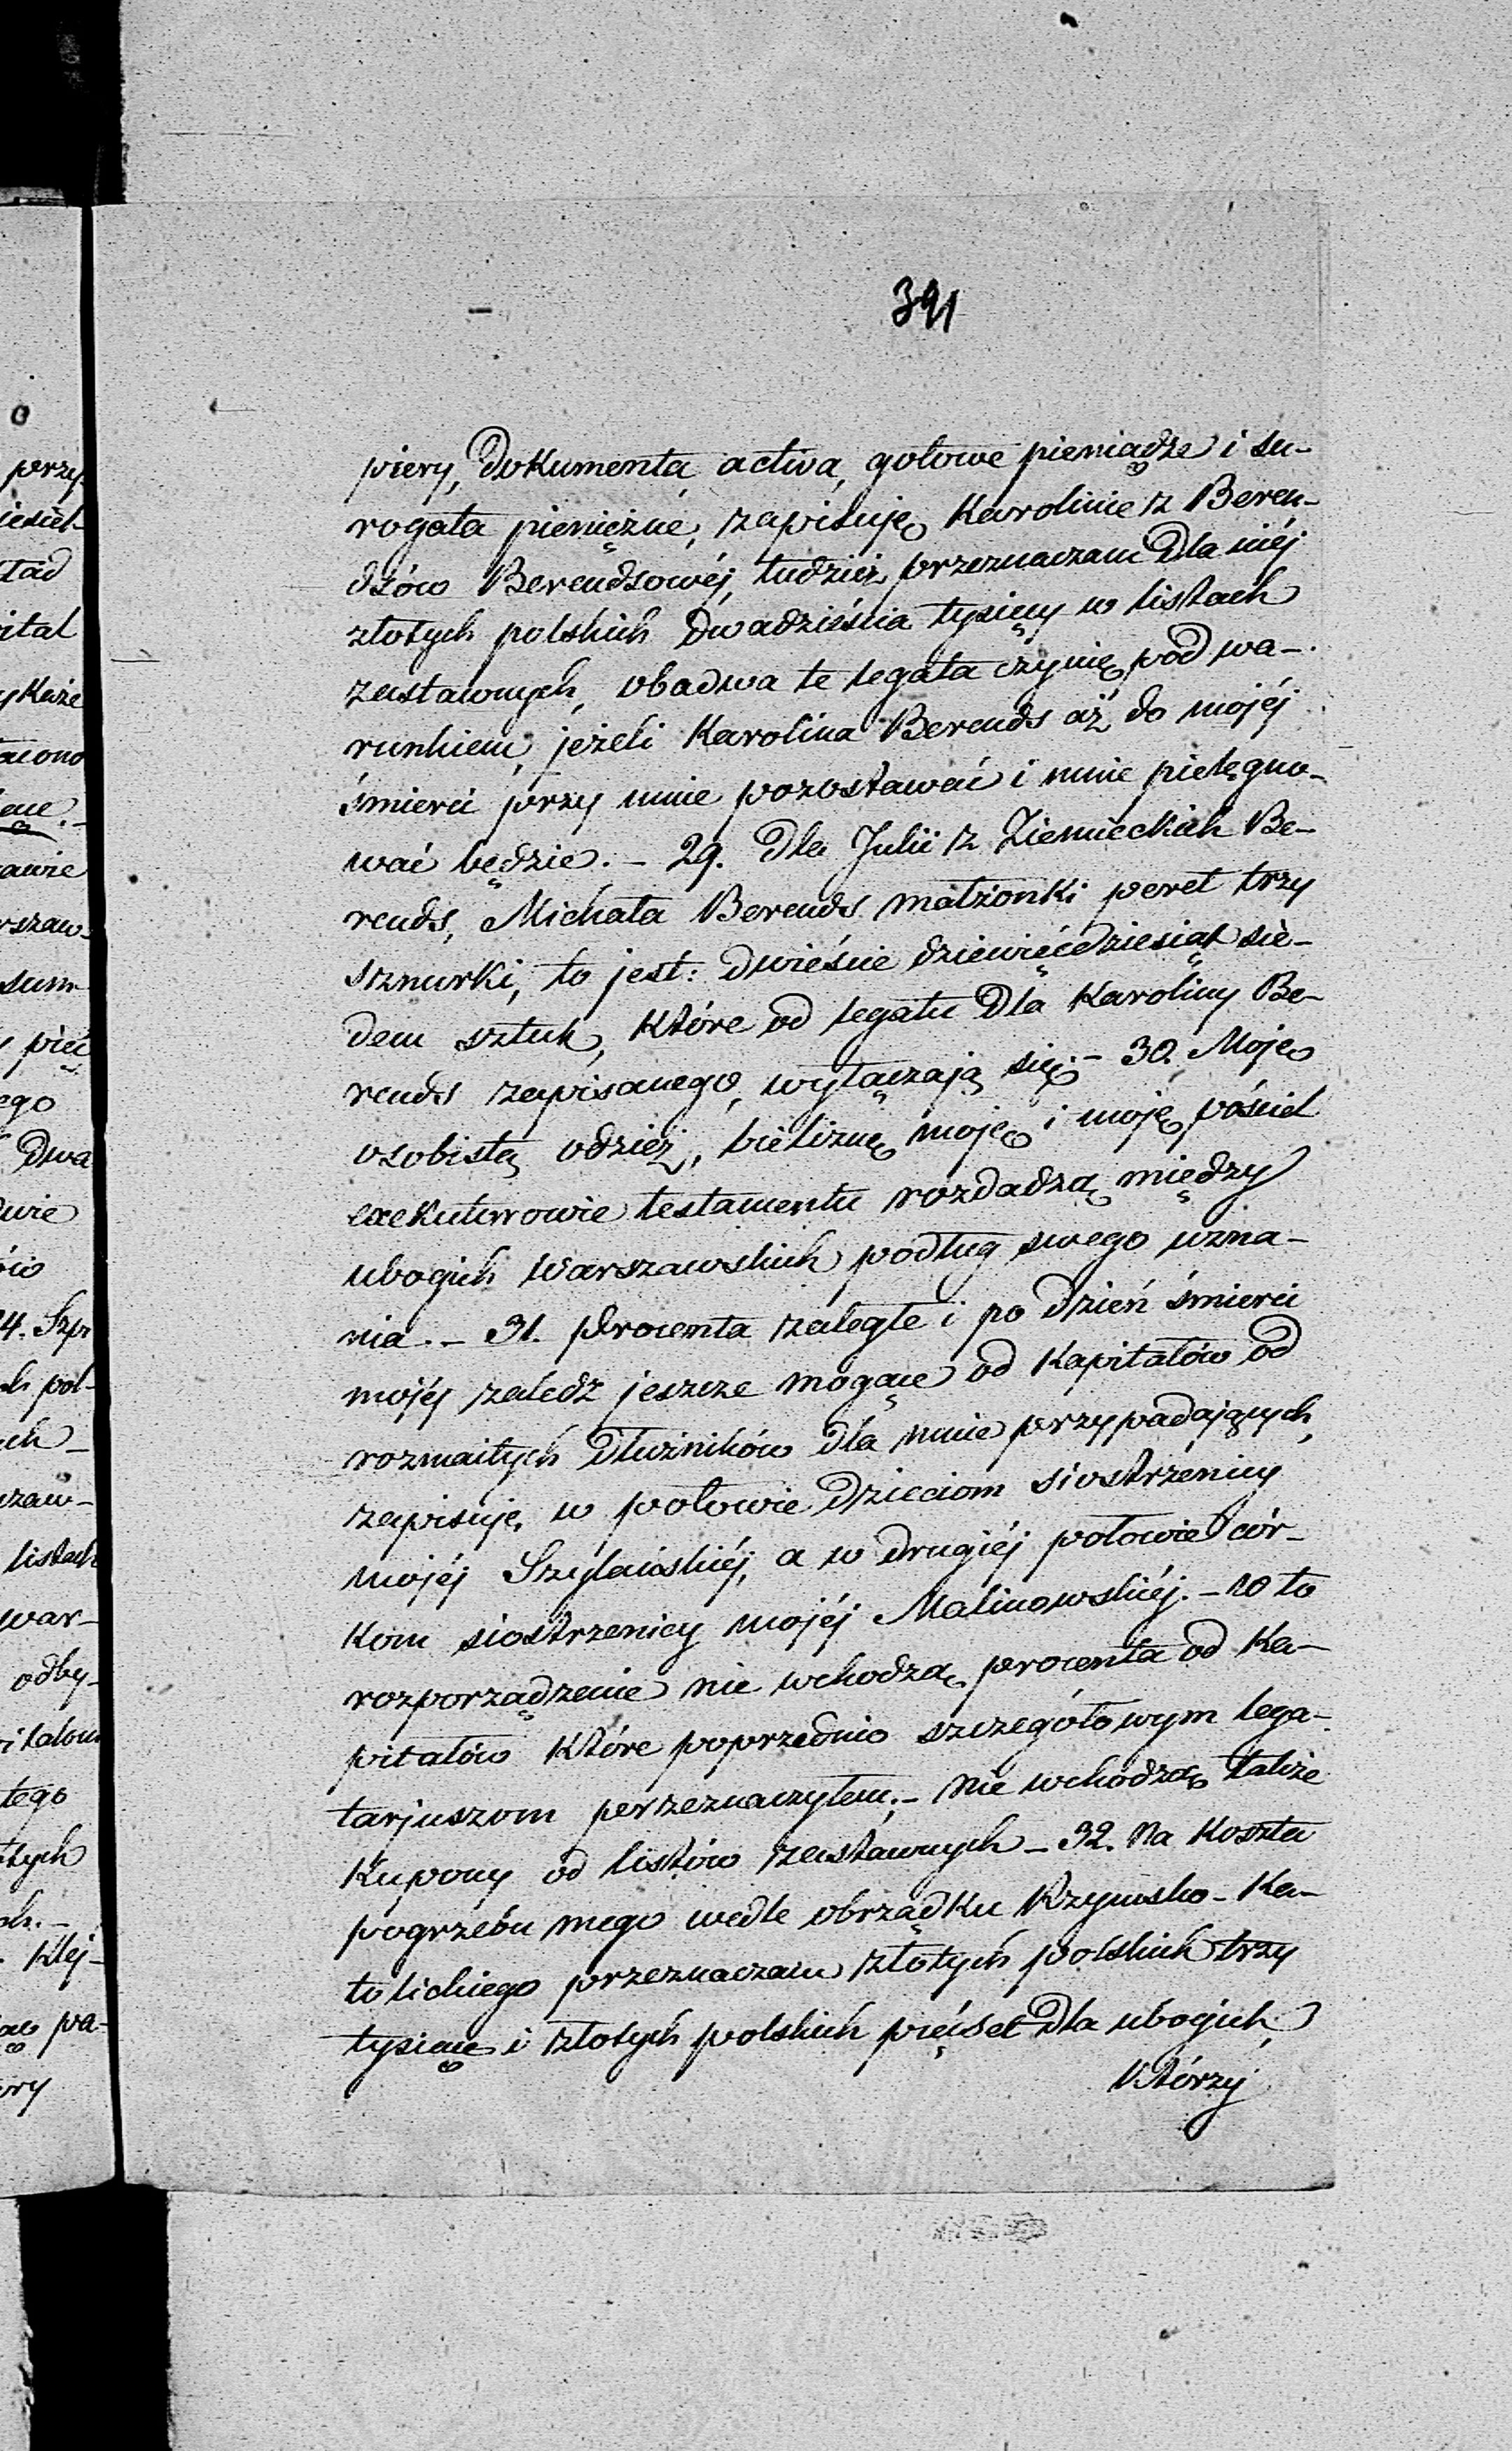 391
piery, dokumenta, activa, gotowe pieniądze i su-
rogata pieniężne, zapisuję Karolinie z Beren-
dsów Berendsowéj, tudzież przeznaczam dla niéj
złotych polskich dwadzieścia tysięcy w listach
zastawnych, obadwa te legata czynię pod wa-
runkiem, jeżeli Karolina Berends aż do mojéj
śmierci przy mnie pozostawać i mnie pielęgno-
wać będzie. - 29. Dla Julii z Ziemieckich Be-
rends, Michała Berends małżonki pereł trzy
sznurki, to jest: dwieście dziewięćdziesiąt sie-
dem sztuk, które od legatu dla Karoliny Be-
rends zapisanego, wyłączają się. - 30. Moje
osobistą odzież, bieliznę moję i moję pościel
exekutorowie testamentu rozdadzą między
ubogich Warszawskich podług swego uzna-
nia. - 31. Procenta zaległe i po dzień śmierci
mojéj zaledz jeszcze mogące od kapitałów od
rozmaitych dłużników dla mnie przypadających,
zapisuję, w połowie dzieciom siostrzenicy
mojéj Szylańskiéj, a w drugiéj połowie cór-
kom siostrzenicy mojéj Malinowskiéj. - w to
rozporządzenie nie wchodzą procenta od ka-
pitałów które poprzednio szczegółowym lega-
tarjuszom przeznaczyłem. - nie wchodzą także
kupony od listów zastawnych - 32. Na koszta
pogrzebu mego wedle obrządku Rzymsko-Ka-
tolickiego przeznaczam złotych polskich trzy
tysiące i złotych polskich pięćset dla ubogich,
którzy